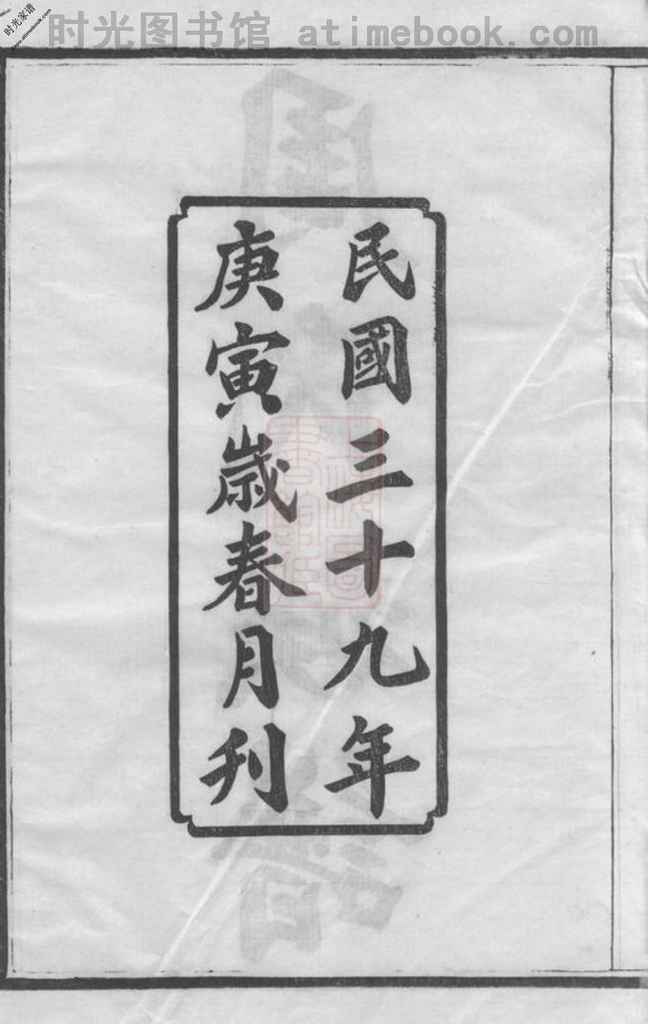 时光家谱
时光图书馆 atimebook.com
民國三十九年
庚寅歲春月刊